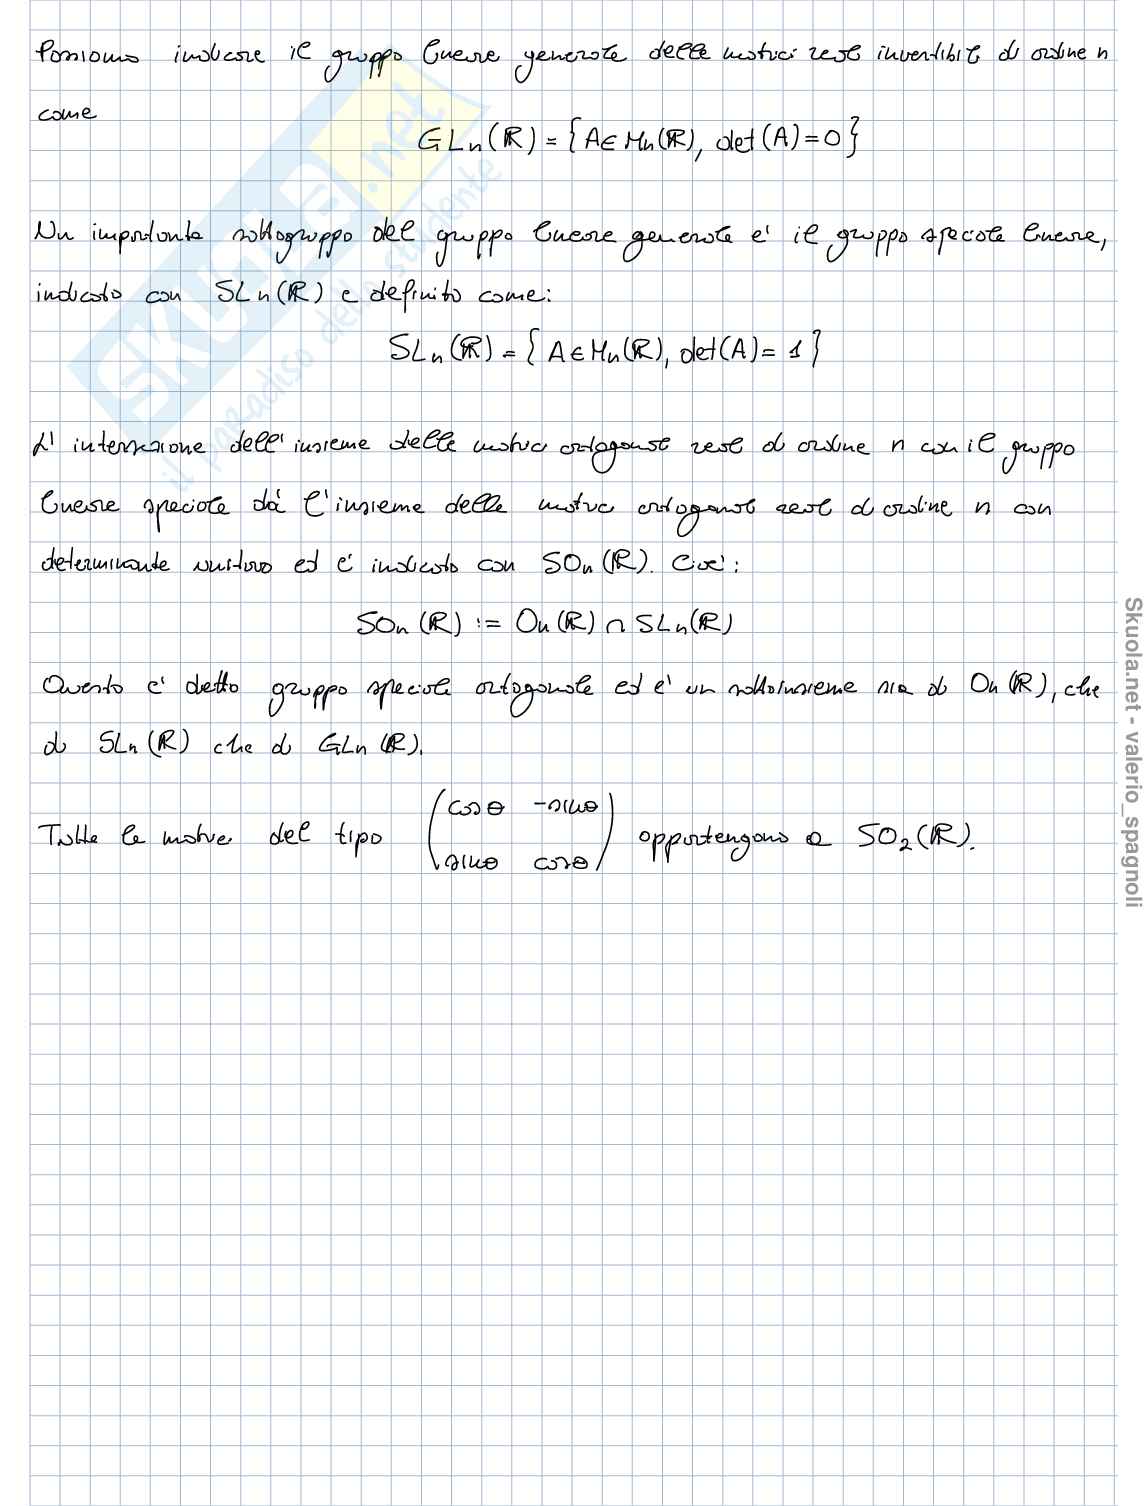 Possiamo indicare il gruppo lineare generale delle matrici reali invertibili di ordine n
come
GLn(ℝ) = {A∈Mn(ℝ), det(A)=0}
Un importante sottogruppo del gruppo lineare generale e' il gruppo speciale lineare,
indicato con SLn(ℝ) e definito come:
SLn(ℝ) = {A∈Mn(ℝ), det(A)= 1}
L' intersezione dell'insieme delle matrici ortogonali reali di ordine n con il gruppo
lineare speciale dà l'insieme delle matrici ortogonali reali di ordine n con
determinante unitario ed e' indicato con SOn(ℝ). Cioe':
SOn(ℝ) := On(ℝ) ∩ SLn(ℝ)
Questo e' detto gruppo speciale ortogonale ed e' un sottoinsieme sia di On(ℝ), che
di SLn(ℝ) che di GLn(ℝ).
Tutte le matrici del tipo (cosθ -sinθ
sinθ cosθ) appartengono a SO₂(ℝ).
SKUOLA.net
il paradiso dello studente
Skuola.net - valerio_spagnoli